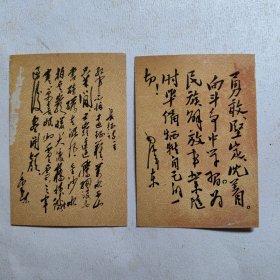 长征诗一首
红军不怕远征难万水千山
只等闲五岭逶迤腾细浪
乌蒙磅礴走泥丸金沙水
拍云崖暖大渡桥横铁
索寒更喜岷山千里雪三军
过后尽开颜
毛泽东
勇敢、坚定、沉着。
向斗争中学习。为
民族解放事业随
时准备牺牲自己的一
切！
毛泽东